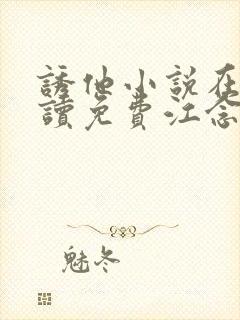 誘他小説在
讀免費江念
魅冬